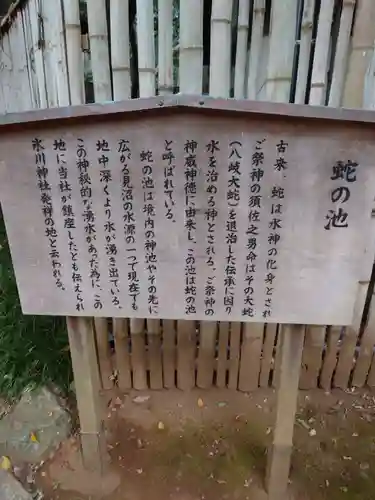 蛇の池
古来、蛇は水神の化身とされ
ご祭神の須佐之男命はその大蛇
(八岐大蛇)を退治した伝承に因り
水を治める神とされる。ご祭神の
神徳に由来し、この池は蛇の池
と呼ばれている。
蛇の池は境内の神池やその先に
広がる見沼の水源の一つで現在でも
地中深くより水が湧き出ている。
この神秘的な湧水があった為に、この
地に当社が鎮座したとも伝えられ
氷川神社発祥の地と云われる。